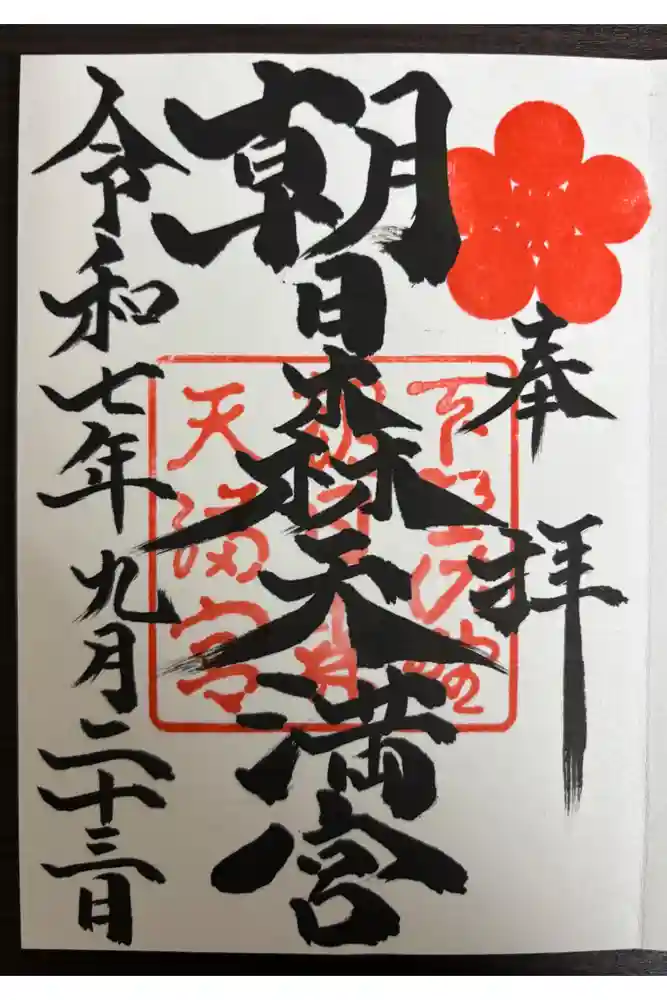 奉拝
朝日森天満宮
天満宮
令和七年九月二十三日